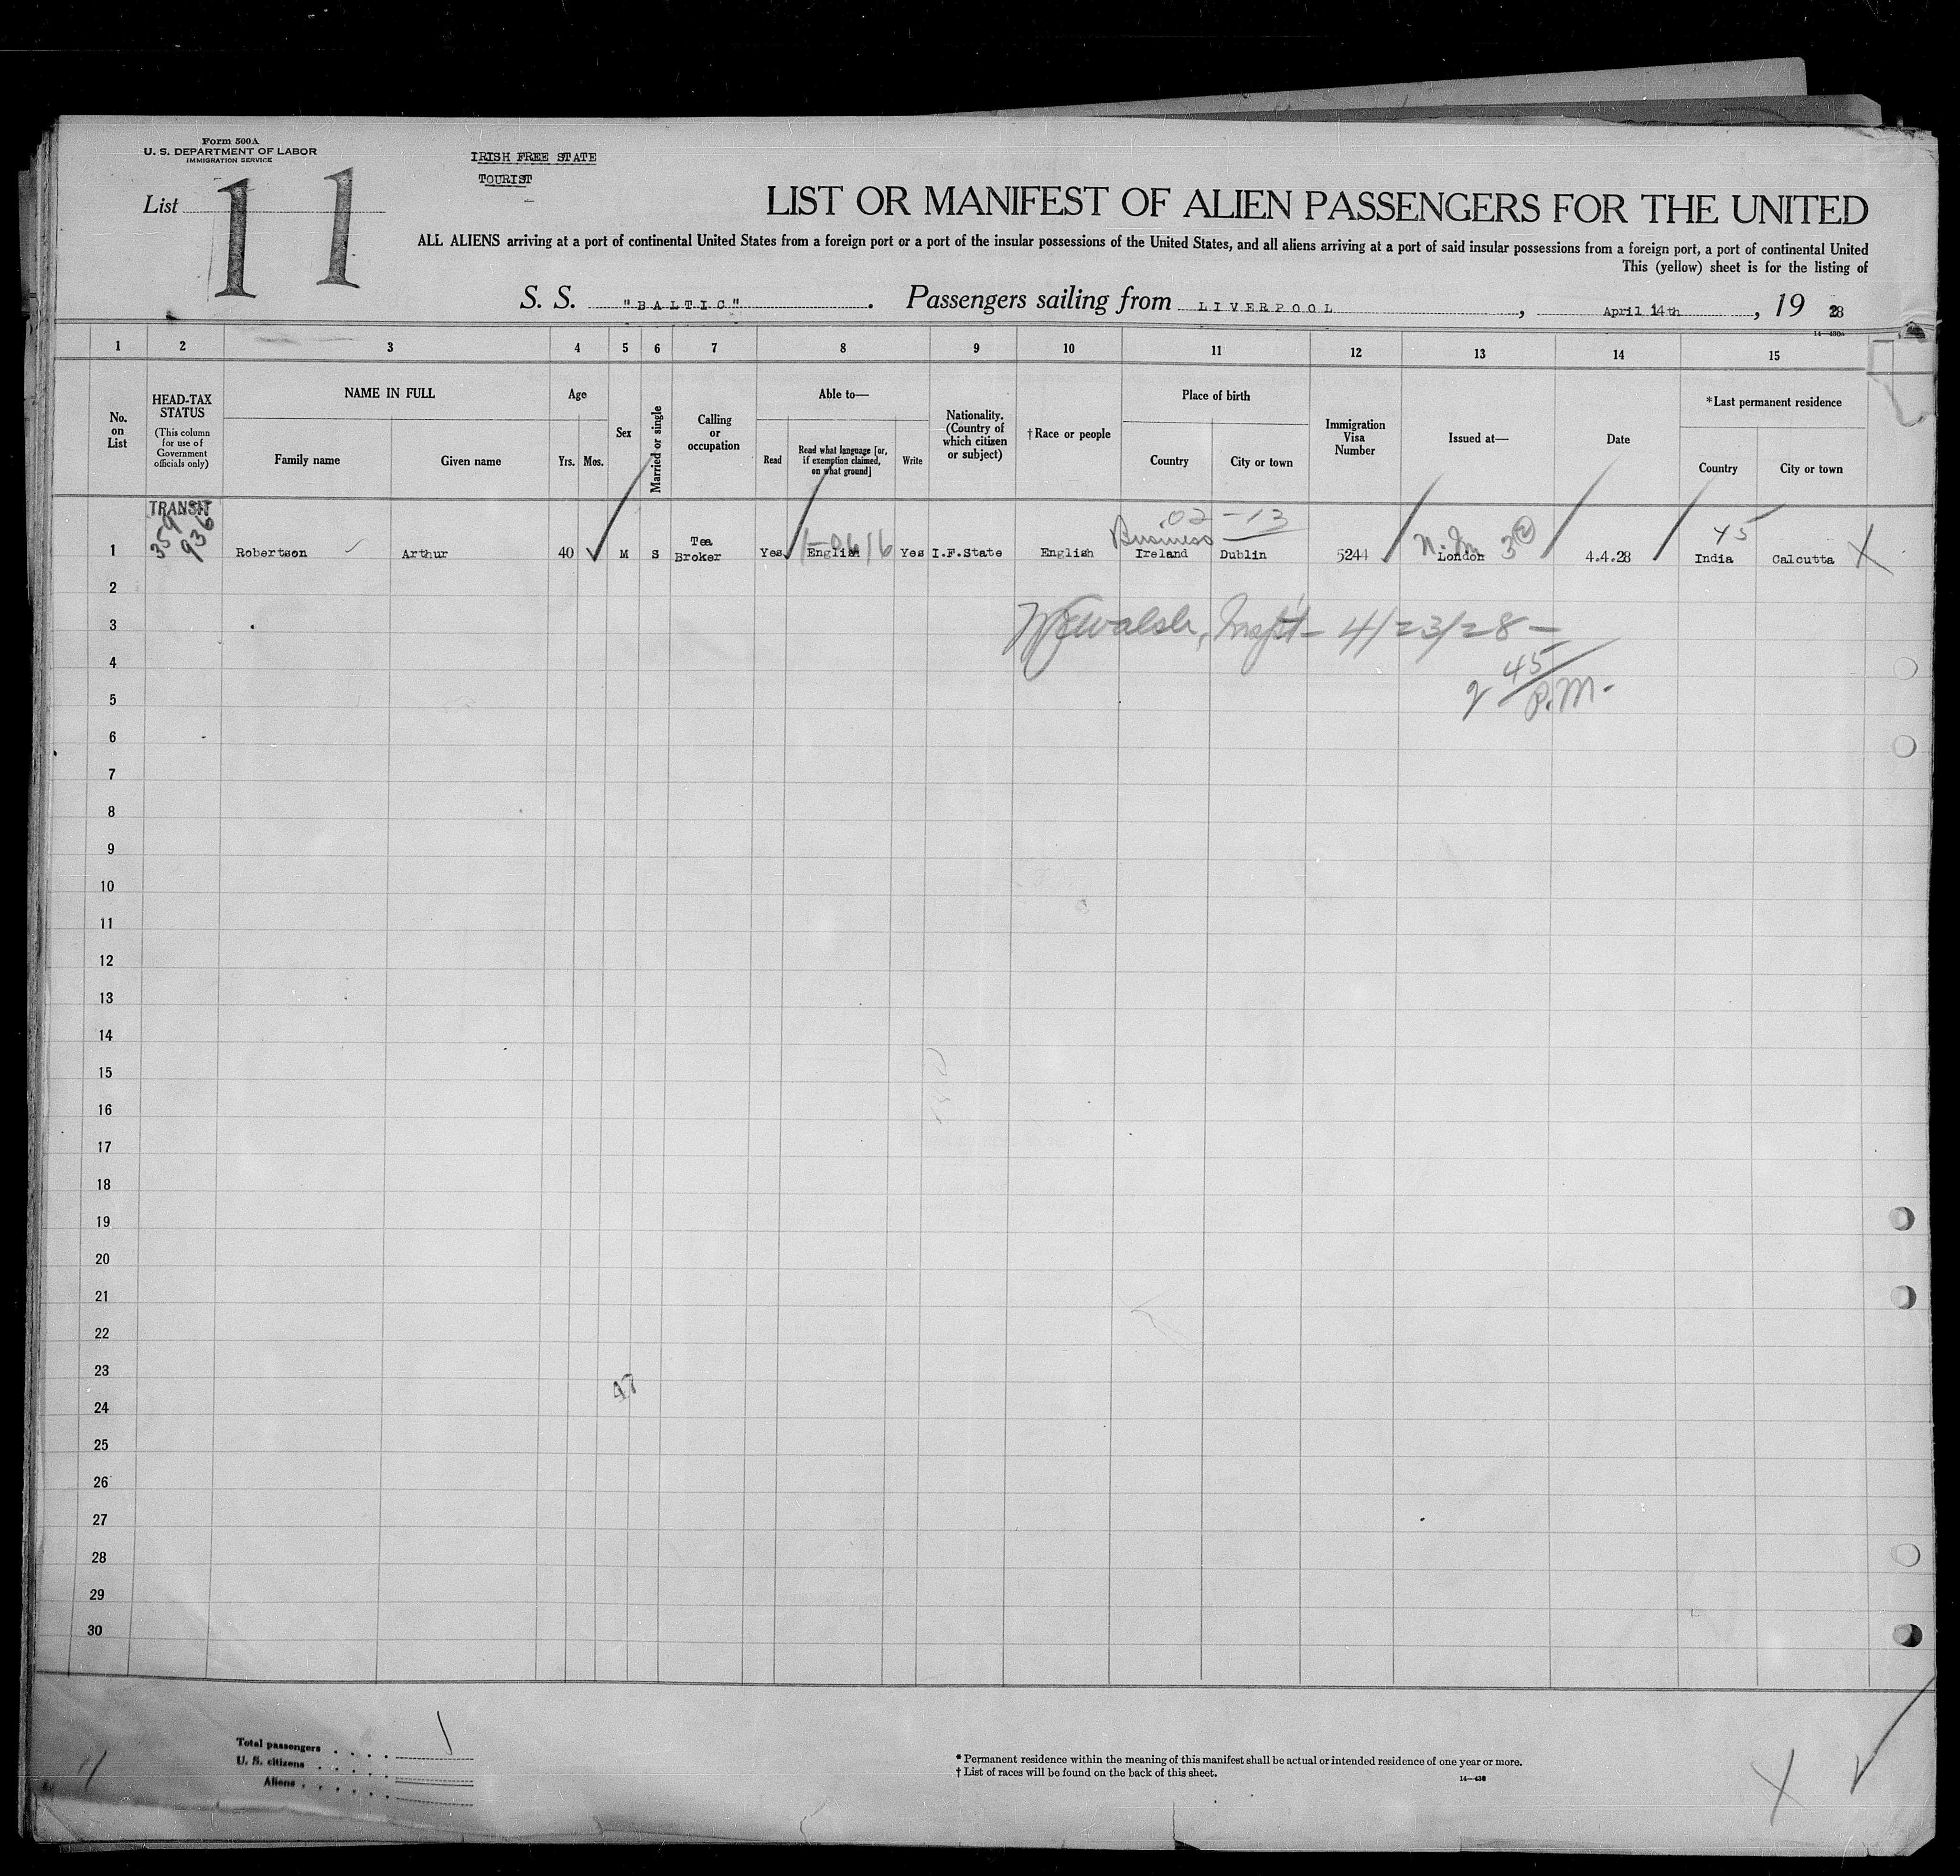 Form 500A
U. S. DEPARTMENT OF LABOR
IMMIGRATION SERVICE
IRISH FREE STATE
TOURIST
List 11
LIST OR MANIFEST OF ALIEN PASSENGERS FOR THE UNITED
ALL ALIENS arriving at a port of continental United States from a foreign port or a port of the insular possessions of the United States, and all aliens arriving at a port of said insular possessions from a foreign port, a port of continental United
This (yellow) sheet is for the listing of
S. S. "BALTIC". Passengers sailing from LIVERPOOL, April 14th, 19 28
14—430a
1 2 3 4 5 6 7 8 9 10 11 12 13 14 15
No. on List
HEAD-TAX STATUS
(This column for use of Government officials only)
NAME IN FULL
Family name Given name
Age
Yrs. Mos.
Sex
Married or single
Calling or occupation
Able to—
Read
Read what language [or, if exemption claimed, on what ground]
Write
Nationality. (Country of which citizen or subject)
†Race or people
Place of birth
Country City or town
Immigration Visa Number
Issued at—
Date
*Last permanent residence
Country City or town
TRANSIT
359
936
.02 - 13
Business
45
1 Robertson Arthur 40 M S Tea Broker Yes English Yes I.F.State English Ireland Dublin 5244 London 4.4.28 India Calcutta X
2
3
Walsh, Insp't - 4/23/28 -
4
45
5
P.M.
6
7
8
9
10
11
12
13
14
15
16
17
18
19
20
21
22
23
47
24
25
26
27
28
29
30
Total passengers 1
U. S. citizens
Aliens
* Permanent residence within the meaning of this manifest shall be actual or intended residence of one year or more.
† List of races will be found on the back of this sheet.
14—430
X